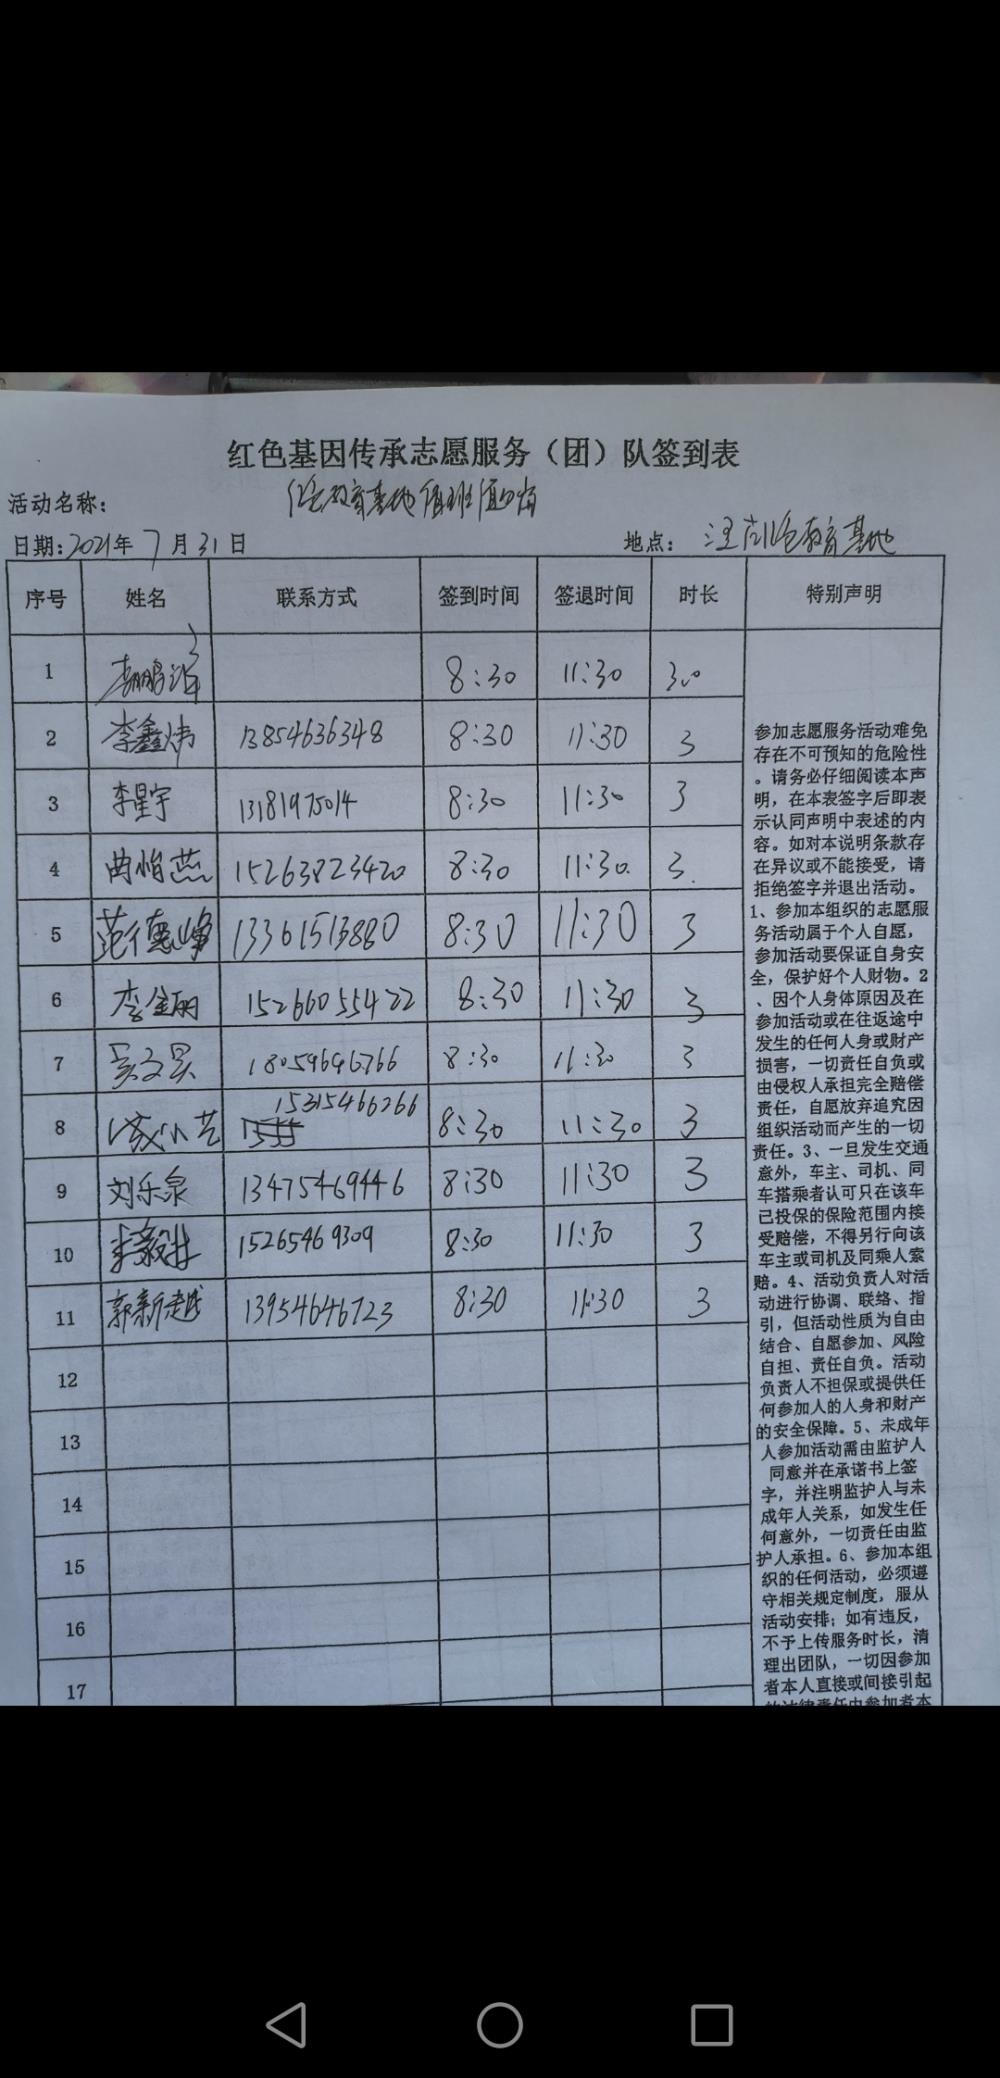 红色基因传承志愿服务（团）队签到表
活动名称： 红色教育基地值班值岗
日期：2021年7月31日 地点： 红色教育基地
序号 姓名 联系方式 签到时间 签退时间 时长 特别声明
1 8:30 11:30 3.0
2 李鑫炜 13854636348 8:30 11:30 3
3 李星宇 13181975014 8:30 11:30 3
4 曲怡燕 15263823420 8:30 11:30 3
5 范德峥 13361513880 8:30 11:30 3
6 李金丽 15266055422 8:30 11:30 3
7 吴文昊 18059696766 8:30 11:30 3
8 15315466266 8:30 11:30 3
9 刘乐泉 13475469446 8:30 11:30 3
10 15265469309 8:30 11:30 3
11 郭新越 13954646723 8:30 11:30 3
12
13
14
15
16
17
参加志愿服务活动难免
存在不可预知的危险性
。请务必仔细阅读本声
明，在本表签字后即表
示认同声明中表述的内
容。如对本说明条款存
在异议或不能接受，请
拒绝签字并退出活动。
1、参加本组织的志愿服
务活动属于个人自愿，
参加活动要保证自身安
全，保护好个人财物。2
、因个人身体原因及在
参加活动或在往返途中
发生的任何人身或财产
损害，一切责任自负或
由侵权人承担完全赔偿
责任，自愿放弃追究因
组织活动而产生的一切
责任。3、一旦发生交通
意外，车主、司机、同
车搭乘者认可只在该车
已投保的保险范围内接
受赔偿，不得另行向该
车主或司机及同乘人索
赔。4、活动负责人对活
动进行协调、联络、指
引，但活动性质为自由
结合、自愿参加、风险
自担、责任自负。活动
负责人不担保或提供任
何参加人的人身和财产
的安全保障。5、未成年
人参加活动需由监护人
同意并在承诺书上签
字，并注明监护人与未
成年人关系，如发生任
何意外，一切责任由监
护人承担。6、参加本组
织的任何活动，必须遵
守相关规定制度，服从
活动安排；如有违反，
不予上传服务时长，清
理出团队，一切因参加
者本人直接或间接引起
的法律责任由参加者本